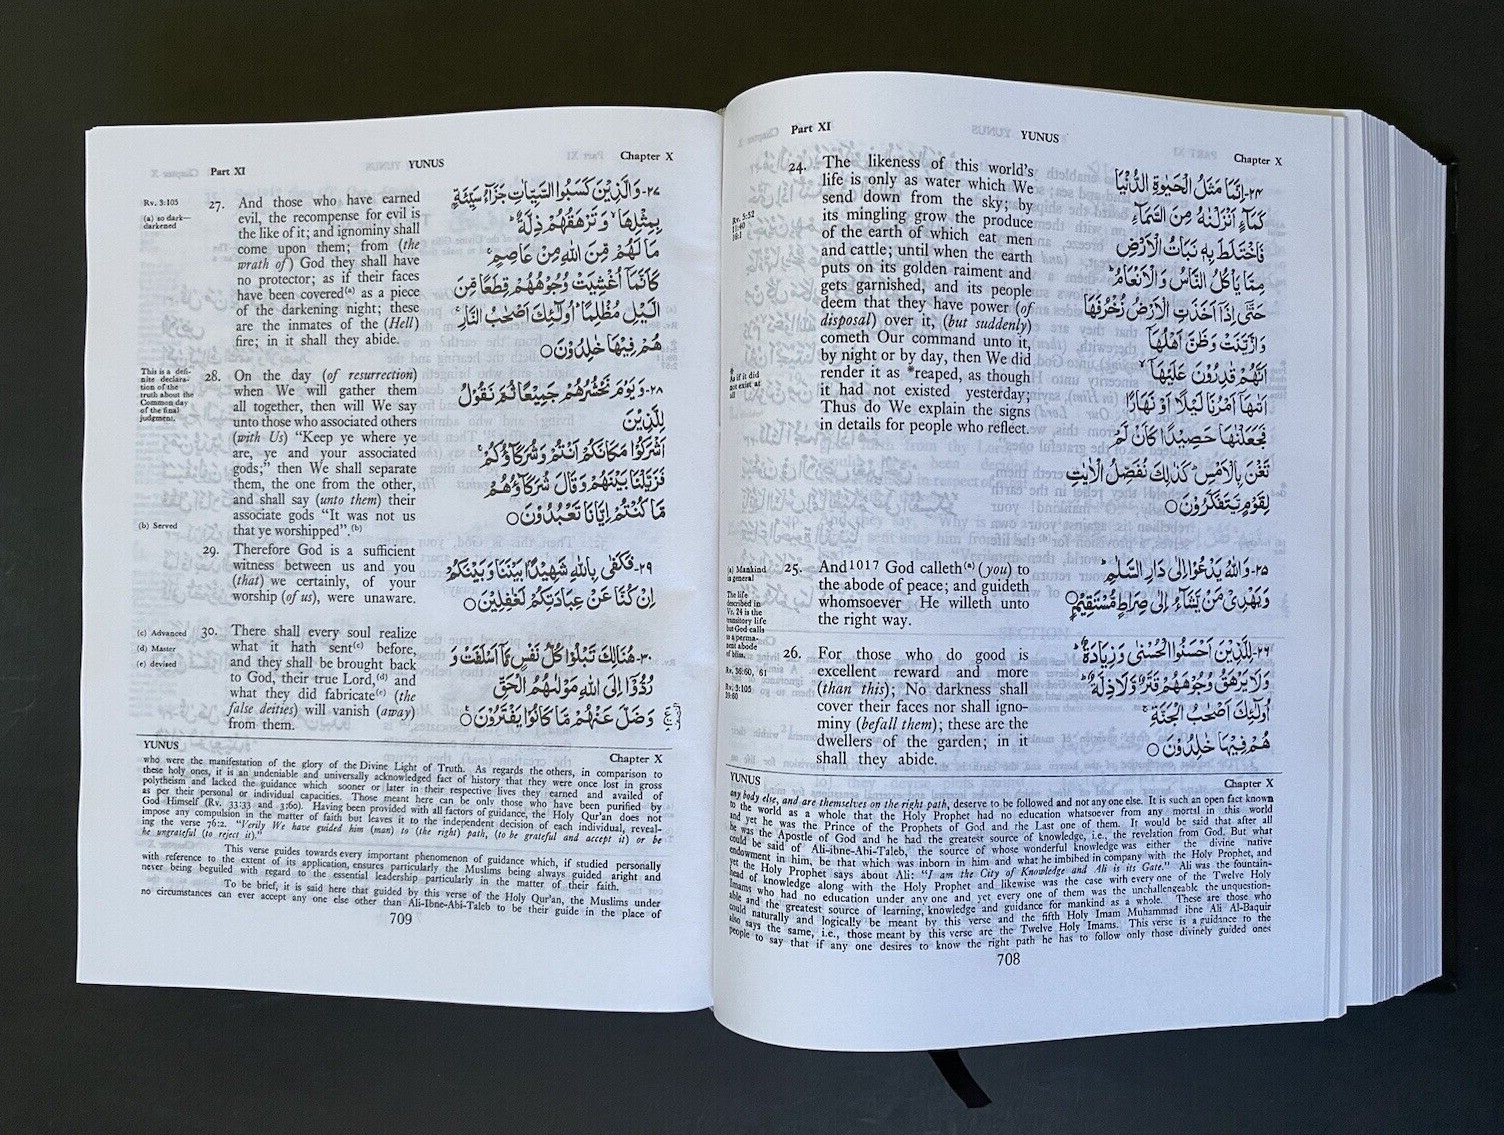 Part XI
YUNUS
Chapter X
24. The likeness of this world's
life is only as water which We
send down from the sky; by
its mingling grow the produce
of the earth of which eat men
and cattle; until when the earth
puts on its golden raiment and
gets garnished, and its people
deem that they have power (of
disposal) over it, (but suddenly)
cometh Our command unto it,
by night or by day, then We did
render it as *reaped, as though
it had not existed yesterday;
Thus do We explain the signs
in details for people who reflect.
Rv. 5:52
* As if it did
not exist at
all
٢٤-اِنَّمَا مَثَلُ الْحَيٰوةِ الدُّنْيَا
كَمَآءٍ اَنْزَلْنٰهُ مِنَ السَّمَآءِ
فَاخْتَلَطَ بِهٖ نَبَاتُ الْاَرْضِ
مِمَّا يَاْكُلُ النَّاسُ وَالْاَنْعَامُ ؕ
حَتّٰى اِذَآ اَخَذَتِ الْاَرْضُ زُخْرُفَهَا
وَازَّيَّنَتْ وَظَنَّ اَهْلُهَآ
اَنَّهُمْ قٰدِرُوْنَ عَلَيْهَآ ۙ
اَتٰىهَآ اَمْرُنَا لَيْلًا اَوْ نَهَارًا
فَجَعَلْنٰهَا حَصِيْدًا كَاَنْ لَّمْ
تَغْنَ بِالْاَمْسِ ؕ كَذٰلِكَ نُفَصِّلُ الْاٰيٰتِ
لِقَوْمٍ يَّتَفَكَّرُوْنَ ○
25. And 1017 God calleth(a) (you) to
the abode of peace; and guideth
whomsoever He willeth unto
the right way.
(a) Mankind
in general
The life
described in
Vr. 24 is the
transitory life
but God calls
to a perma-
nent abode
of bliss.
٢٥-وَاللّٰهُ يَدْعُوْٓا اِلٰى دَارِ السَّلٰمِ ؕ
وَيَهْدِيْ مَنْ يَّشَآءُ اِلٰى صِرَاطٍ مُّسْتَقِيْمٍ ○
26. For those who do good is
excellent reward and more
(than this); No darkness shall
cover their faces nor shall igno-
miny (befall them); these are the
dwellers of the garden; in it
shall they abide.
Rv. 36:60, 61
Rv. 3:105
٢٦-لِلَّذِيْنَ اَحْسَنُوا الْحُسْنٰى وَزِيَادَةٌ ؕ
وَلَا يَرْهَقُ وُجُوْهَهُمْ قَتَرٌ وَّلَا ذِلَّةٌ ؕ
اُولٰٓئِكَ اَصْحٰبُ الْجَنَّةِ ۚ
هُمْ فِيْهَا خٰلِدُوْنَ ○
YUNUS
Chapter X
any body else, and are themselves on the right path, deserve to be followed and not any one else. It is such an open fact known
to the world as a whole that the Holy Prophet had no education whatsoever from any mortal in this world
and yet he was the Prince of the Prophets of God and the Last one of them. It would be said that after all
he was the Apostle of God and he had the greatest source of knowledge, i.e., the revelation from God. But what
could be said of Ali-ibne-Abi-Taleb, the source of whose wonderful knowledge was either the divine native
endowment in him, be that which was inborn in him and what he imbibed in company with the Holy Prophet, and
yet the Holy Prophet says about Ali: "I am the City of Knowledge and Ali is its Gate." Ali was the fountain-
head of knowledge along with the Holy Prophet and likewise was the case with every one of the Twelve Holy
Imams who had no education under any one and yet every one of them was the unchallengeable the unquestion-
able and the greatest source of learning, knowledge and guidance for mankind as a whole. These are those who
could naturally and logically be meant by this verse and the fifth Holy Imam Muhammad ibne Ali Al-Baquir
also says the same, i.e., those meant by this verse are the Twelve Holy Imams. This verse is a guidance to the
people to say that if any one desires to know the right path he has to follow only those divinely guided ones
708
Part XI
YUNUS
Chapter X
27. And those who have earned
evil, the recompense for evil is
the like of it; and ignominy shall
come upon them; from (the
wrath of) God they shall have
no protector; as if their faces
have been covered(a) as a piece
of the darkening night; these
are the inmates of the (Hell)
fire; in it shall they abide.
Rv. 3:105
(a) so dark—
darkened
٢٧-وَالَّذِيْنَ كَسَبُوا السَّيِّاٰتِ جَزَآءُ سَيِّئَةٍ
بِمِثْلِهَا ۙ وَتَرْهَقُهُمْ ذِلَّةٌ ؕ
مَا لَهُمْ مِّنَ اللّٰهِ مِنْ عَاصِمٍ ۚ
كَاَنَّمَآ اُغْشِيَتْ وُجُوْهُهُمْ قِطَعًا مِّنَ
الَّيْلِ مُظْلِمًا ؕ اُولٰٓئِكَ اَصْحٰبُ النَّارِ ۚ
هُمْ فِيْهَا خٰلِدُوْنَ ○
28. On the day (of resurrection)
when We will gather them
all together, then will We say
unto those who associated others
(with Us) "Keep ye where ye
are, ye and your associated
gods;" then We shall separate
them, the one from the other,
and shall say (unto them) their
associate gods "It was not us
that ye worshipped".(b)
This is a defi-
nite declara-
tion of the
truth about the
Common day
of the final
judgment.
(b) Served
٢٨-وَيَوْمَ نَحْشُرُهُمْ جَمِيْعًا ثُمَّ نَقُوْلُ
لِلَّذِيْنَ
اَشْرَكُوْا مَكَانَكُمْ اَنْتُمْ وَشُرَكَآؤُكُمْ ۚ
فَزَيَّلْنَا بَيْنَهُمْ وَقَالَ شُرَكَآؤُهُمْ
مَّا كُنْتُمْ اِيَّانَا تَعْبُدُوْنَ ○
29. Therefore God is a sufficient
witness between us and you
(that) we certainly, of your
worship (of us), were unaware.
٢٩-فَكَفٰى بِاللّٰهِ شَهِيْدًۢا بَيْنَنَا وَبَيْنَكُمْ
اِنْ كُنَّا عَنْ عِبَادَتِكُمْ لَغٰفِلِيْنَ ○
30. There shall every soul realize
what it hath sent(c) before,
and they shall be brought back
to God, their true Lord,(d) and
what they did fabricate(e) (the
false deities) will vanish (away)
from them.
(c) Advanced
(d) Master
(e) devised
٣٠-هُنَالِكَ تَبْلُوْا كُلُّ نَفْسٍ مَّآ اَسْلَفَتْ وَ
رُدُّوْٓا اِلَى اللّٰهِ مَوْلٰىهُمُ الْحَقِّ
وَضَلَّ عَنْهُمْ مَّا كَانُوْا يَفْتَرُوْنَ ○
YUNUS
Chapter X
who were the manifestation of the glory of the Divine Light of Truth. As regards the others, in comparison to
these holy ones, it is an undeniable and universally acknowledged fact of history that they were once lost in gross
polytheism and lacked the guidance which sooner or later in their respective lives they earned and availed of
as per their personal or individual capacities. Those meant here can be only those who have been purified by
God Himself (Rv. 33:33 and 3:60). Having been provided with all factors of guidance, the Holy Qur'an does not
impose any compulsion in the matter of faith but leaves it to the independent decision of each individual, reveal-
ing the verse 76:2. "Verily We have guided him (man) to (the right) path, (to be grateful and accept it) or be
he ungrateful (to reject it)."
This verse guides towards every important phenomenon of guidance which, if studied personally
with reference to the extent of its application, ensures particularly the Muslims being always guided aright and
never being beguiled with regard to the essential leadership particularly in the matter of their faith.
To be brief, it is said here that guided by this verse of the Holy Qur'an, the Muslims under
no circumstances can ever accept any one else other than Ali-Ibne-Abi-Taleb to be their guide in the place of
709